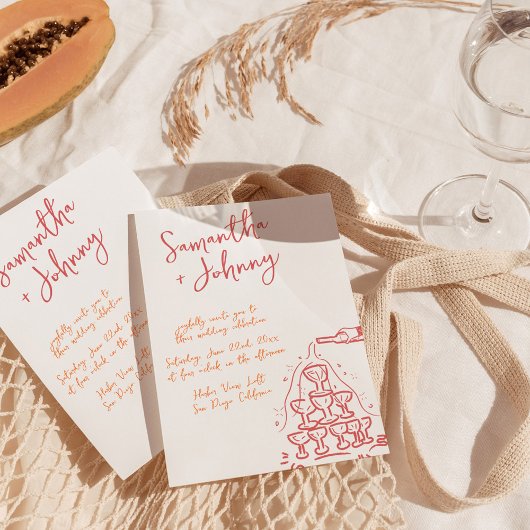 Samantha
+ Johnny
joyfully invite you to
their wedding celebration
Saturday, June 22nd, 20xx
at four o'clock in the afternoon
Harbor View Loft
San Diego California
Samantha
+ Johnny
joyfully invite you to
their wedding celebration
Saturday, June 22nd, 20xx
at four o'clock in the afternoon
Harbor View Loft
San Diego California